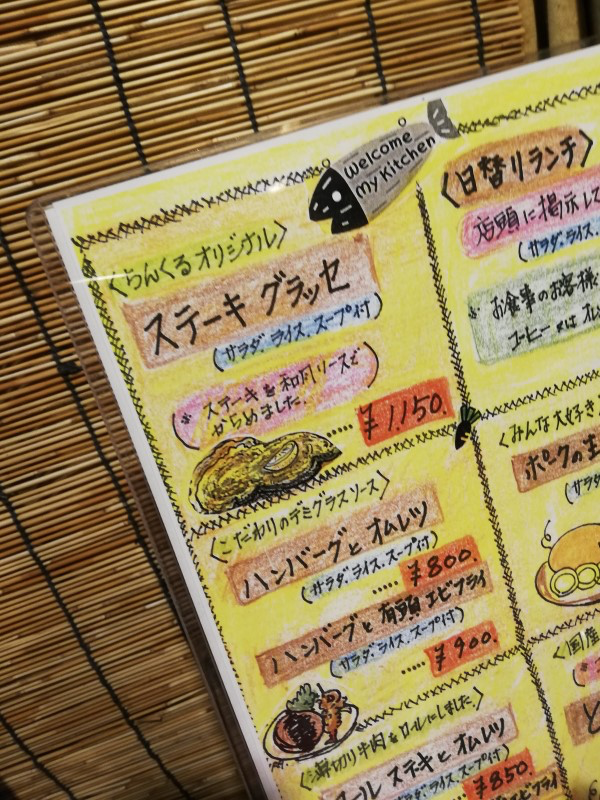 Welcome
My Kitchen
〈らんくるオリジナル〉
ステーキ グラッセ
(サラダ、ライス、スープ付)
(※ ステーキを和風ソースで
からめました。)
‥‥¥1,150.
〈こだわりのデミグラスソース〉
ハンバーグと オムレツ
(サラダ、ライス、スープ付)
‥‥¥800.
ハンバーグと 有頭エビフライ
(サラダ、ライス、スープ付)
‥‥¥900.
〈薄切り牛肉をロールにしました〉
ロール ステーキと オムレツ
ライス、スープ付)
¥850.
〈日替りランチ〉
店頭に掲示して
(サラダ、ライス、
※ お食事のお客様
コーヒー又は オレ
〈みんな大好き
ポークの生
(サラダ
〈国産